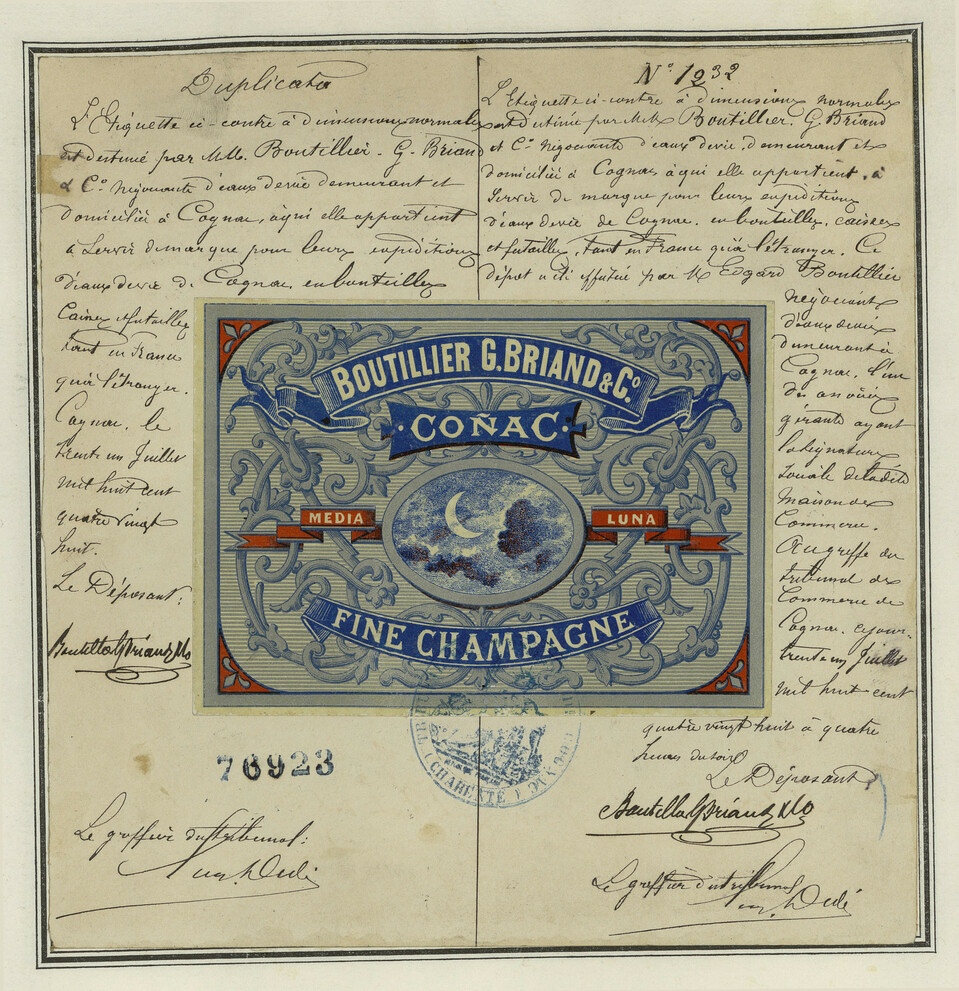 Duplicata
L'Etiquette ci-contre à dimensions normales
est destiné par MM. Boutillier. G. Briand
& Cº négociants d'eaux de vie demeurant et
domiciliés à Cognac, à qui elle appartient
à servir de marque pour leurs expéditions
d'eaux de vie de Cognac, en bouteilles
Caisses et futailles
tant en France
qu'à l'étranger.
Cognac, le
trente un Juillet
mil huit cent
quatre vingt
huit.
Le Déposant:
Boutillier G Briand & Co
76923
Le greffier du tribunal:
Nº 1232
L'Etiquette ci-contre à dimensions normales
est destinée par MM. Boutillier. G. Briand
et Cº négociants d'eaux de vie, demeurant et
domiciliés à Cognac, à qui elle appartient, à
servir de marque pour leurs expéditions
d'eaux de vie de Cognac. en bouteilles, caisses
et futailles, tant en France qu'à l'étranger. Ce
dépot a été effectué par M. Edgard Boutillier
négociant
d'eaux de vie
demeurant à
Cognac. l'un
des associés
gérants ayant
la signature
sociale de ladite
maison de
Commerce.
Au greffe du
tribunal de
Commerce de
Cognac. ce jour
trente un Juillet
mil huit cent
quatre vingt huit à quatre
heures du soir
Le Déposant
Boutillier G Briand & Co
Le greffier du tribunal
BOUTILLIER G. BRIAND & Cº
·COÑAC·
MEDIA LUNA
FINE CHAMPAGNE
(CHARENTE)